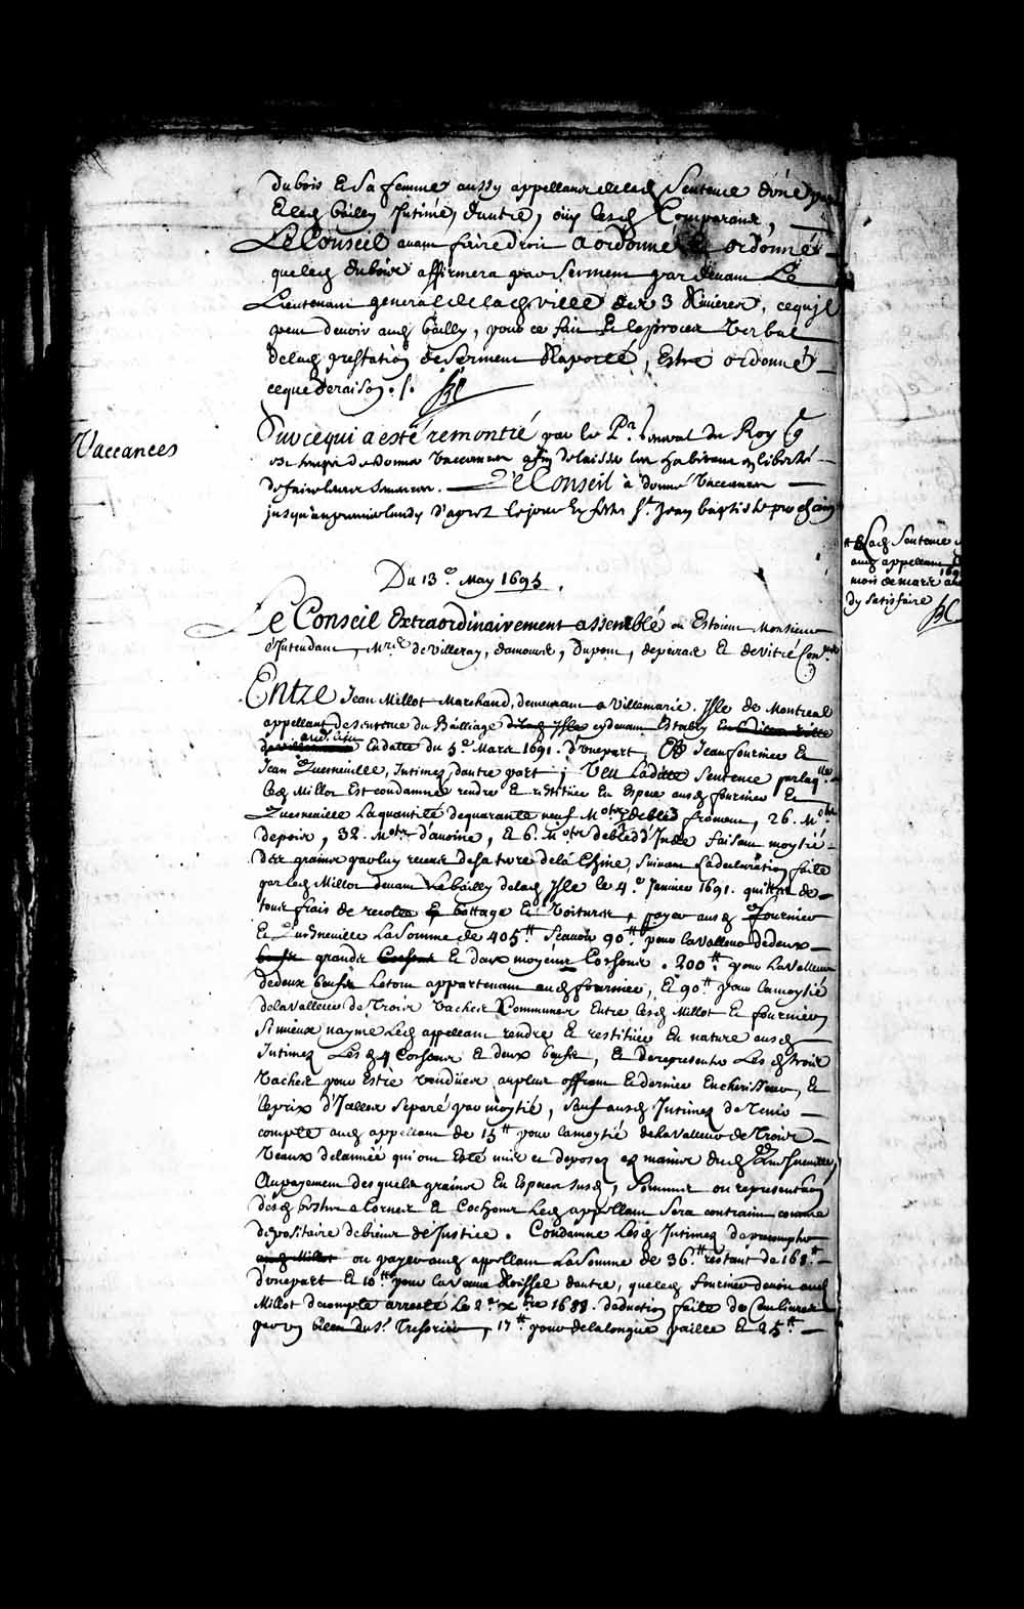 Dubois & Sa femme aussy appellans de lad Sentence
& led bailly Intimé, d'autre, oüy lesd Comparans
Le Conseil avant faire droit a ordonné & ordonne
que led dubois affirmera par Serment par devant Le
Lieutenant general de lad ville des 3 Rivieres, ce qu'il
peut devoir aud bailly, pour ce fait & le procez Verbal
de lad prestation de Serment Raporté, Estre ordonné
ce que de raison ./.
Vaccances
Sur ce qui a esté remontré par le Pr. General du Roy qu
est temps de donner Vaccances afin de laisser les habitans en liberté
de faire leurs Semances. Le Conseil a donné Vaccances
jusqu'au premier lundy d'aprez le jour & feste St. Jean baptiste prochain
Du 13e May 1695.
Le Conseil Extraordinairement assemblé où Estoient Monsieur
l'Intendant, Mres de Villeray, damours, dupont, depeiras & de vitré Conrs
Entre Jean Millot Marchand, demeurant a Villemarie Isle de Montreal
appellant de Sentence du Bailliage de lad Isle cy devant Estably
aud. lieu En datte du 5e Mars 1691. d'une part, Et Jean fournier &
Jean Quesneville, Intimez, d'autre part; Veu Ladte Sentence par laqlle
led Millot Est condamné rendre & restituer En Espece ausd fournier &
Quesneville La quantité de quarante neuf Mots de bled froment, 26. Mots
de pois, 32. Mots d'avoine, & 6. Mots de bled d'Inde faisant moytié
des grains par luy receus de sa terre de la Chine, Suivant La declaration faite
par led Millot devant Le bailly de lad Isle le 4e Janvier 1691. quitte de
tous frais de recolte & battage & Voiture, payer ausd fournier
& Quesneville La Somme de 405lt Scavoir 90lt pour la valleur de deux
grands & deux moyens Cochons. 200lt pour La Valleur
de deux boeufs Le tout appartenant aud fournier, & 90lt pour la moytié
de la Valleur de Trois Vaches Communes Entre lesd Millot & fournier
Si mieux n'ayme Led appellant rendre & restituer En nature ausd
Intimez Les d 4 Cochons & deux boeufs, & de representer Les d trois
Vaches pour Estre Vendües au plus offrant & dernier Encherisseur, &
le prix d'Icelles Separé par moytié, Sauf ausd Intimez de Tenir
compte aud appellant de 15lt pour la moytié de la Valleur de Trois
Veaux de l'année qui ont Esté mis et deposez ez mains dud Quesneville,
Au payement desquels grains En Especes Susd, Sommes ou representation
desd bestes a Cornes & Cochons Led appellant Sera contraint comme
depositaire de biens de Justice. Condamne Lesd Intimez
ou payer aud appellant La Somme de 36lt restant de 168lt
d'une part & 10lt pour d'autre, que led fournier devoit aud
Millot de compte arresté Le 2e xbre 1688. deduction faite de
du Sr. Tresorier, 17lt pour de la longue paille & 25lt
& Lad Sentence
aud appellant
mois de mars
dy Satisfaire